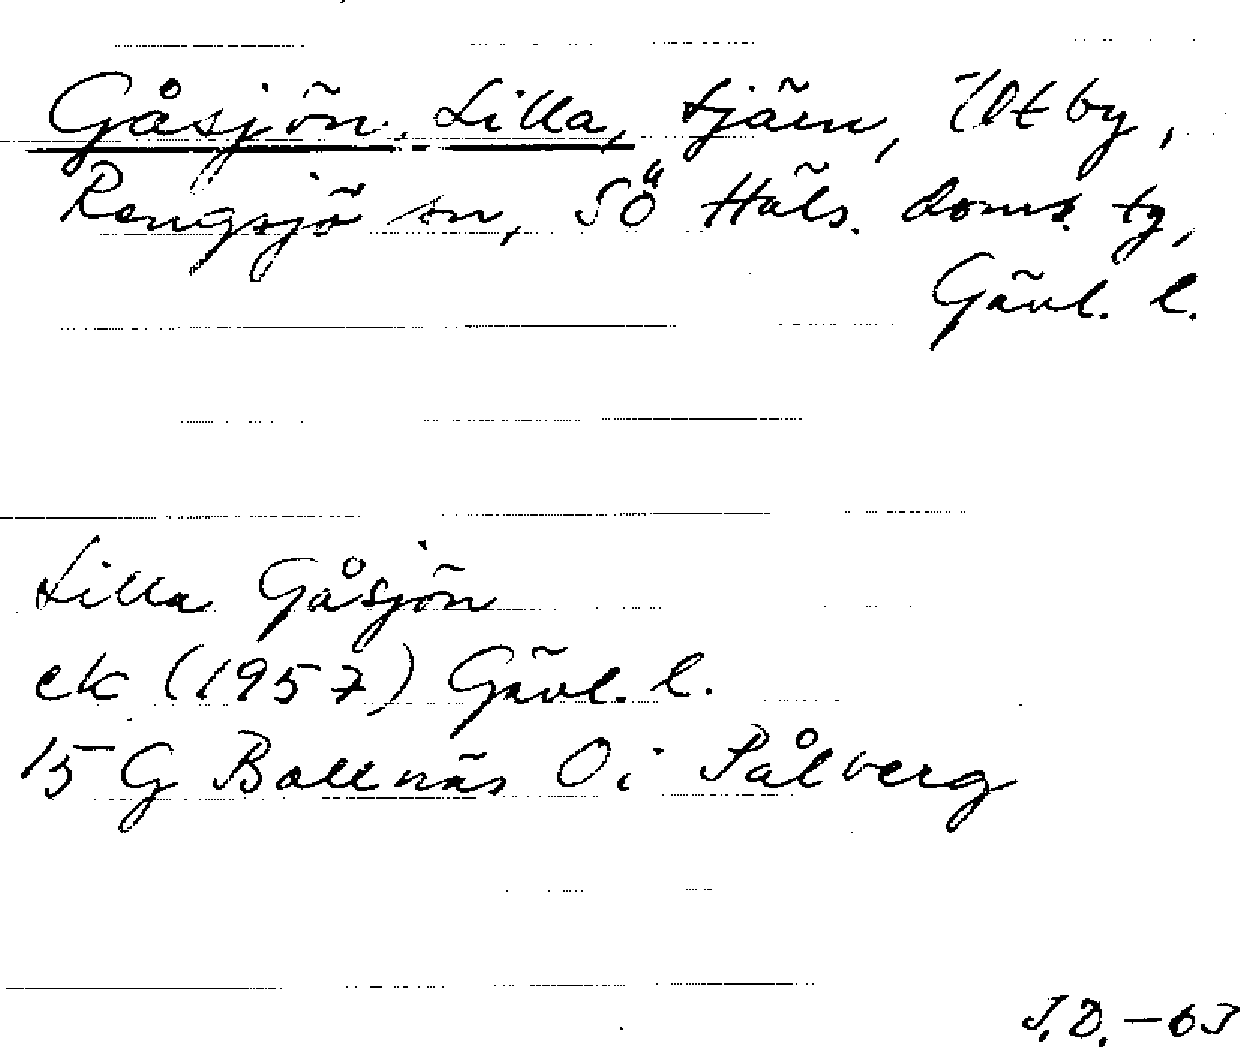 Gåsjön, Lilla, tjärn, Östby,
Rengsjö sn, SÖ Häls. doms. tg,
Gävl. l.
Lilla Gåsjön
ek (1957) Gävl. l.
15 G Bollnäs Ö i Pålberg
J.D. -63